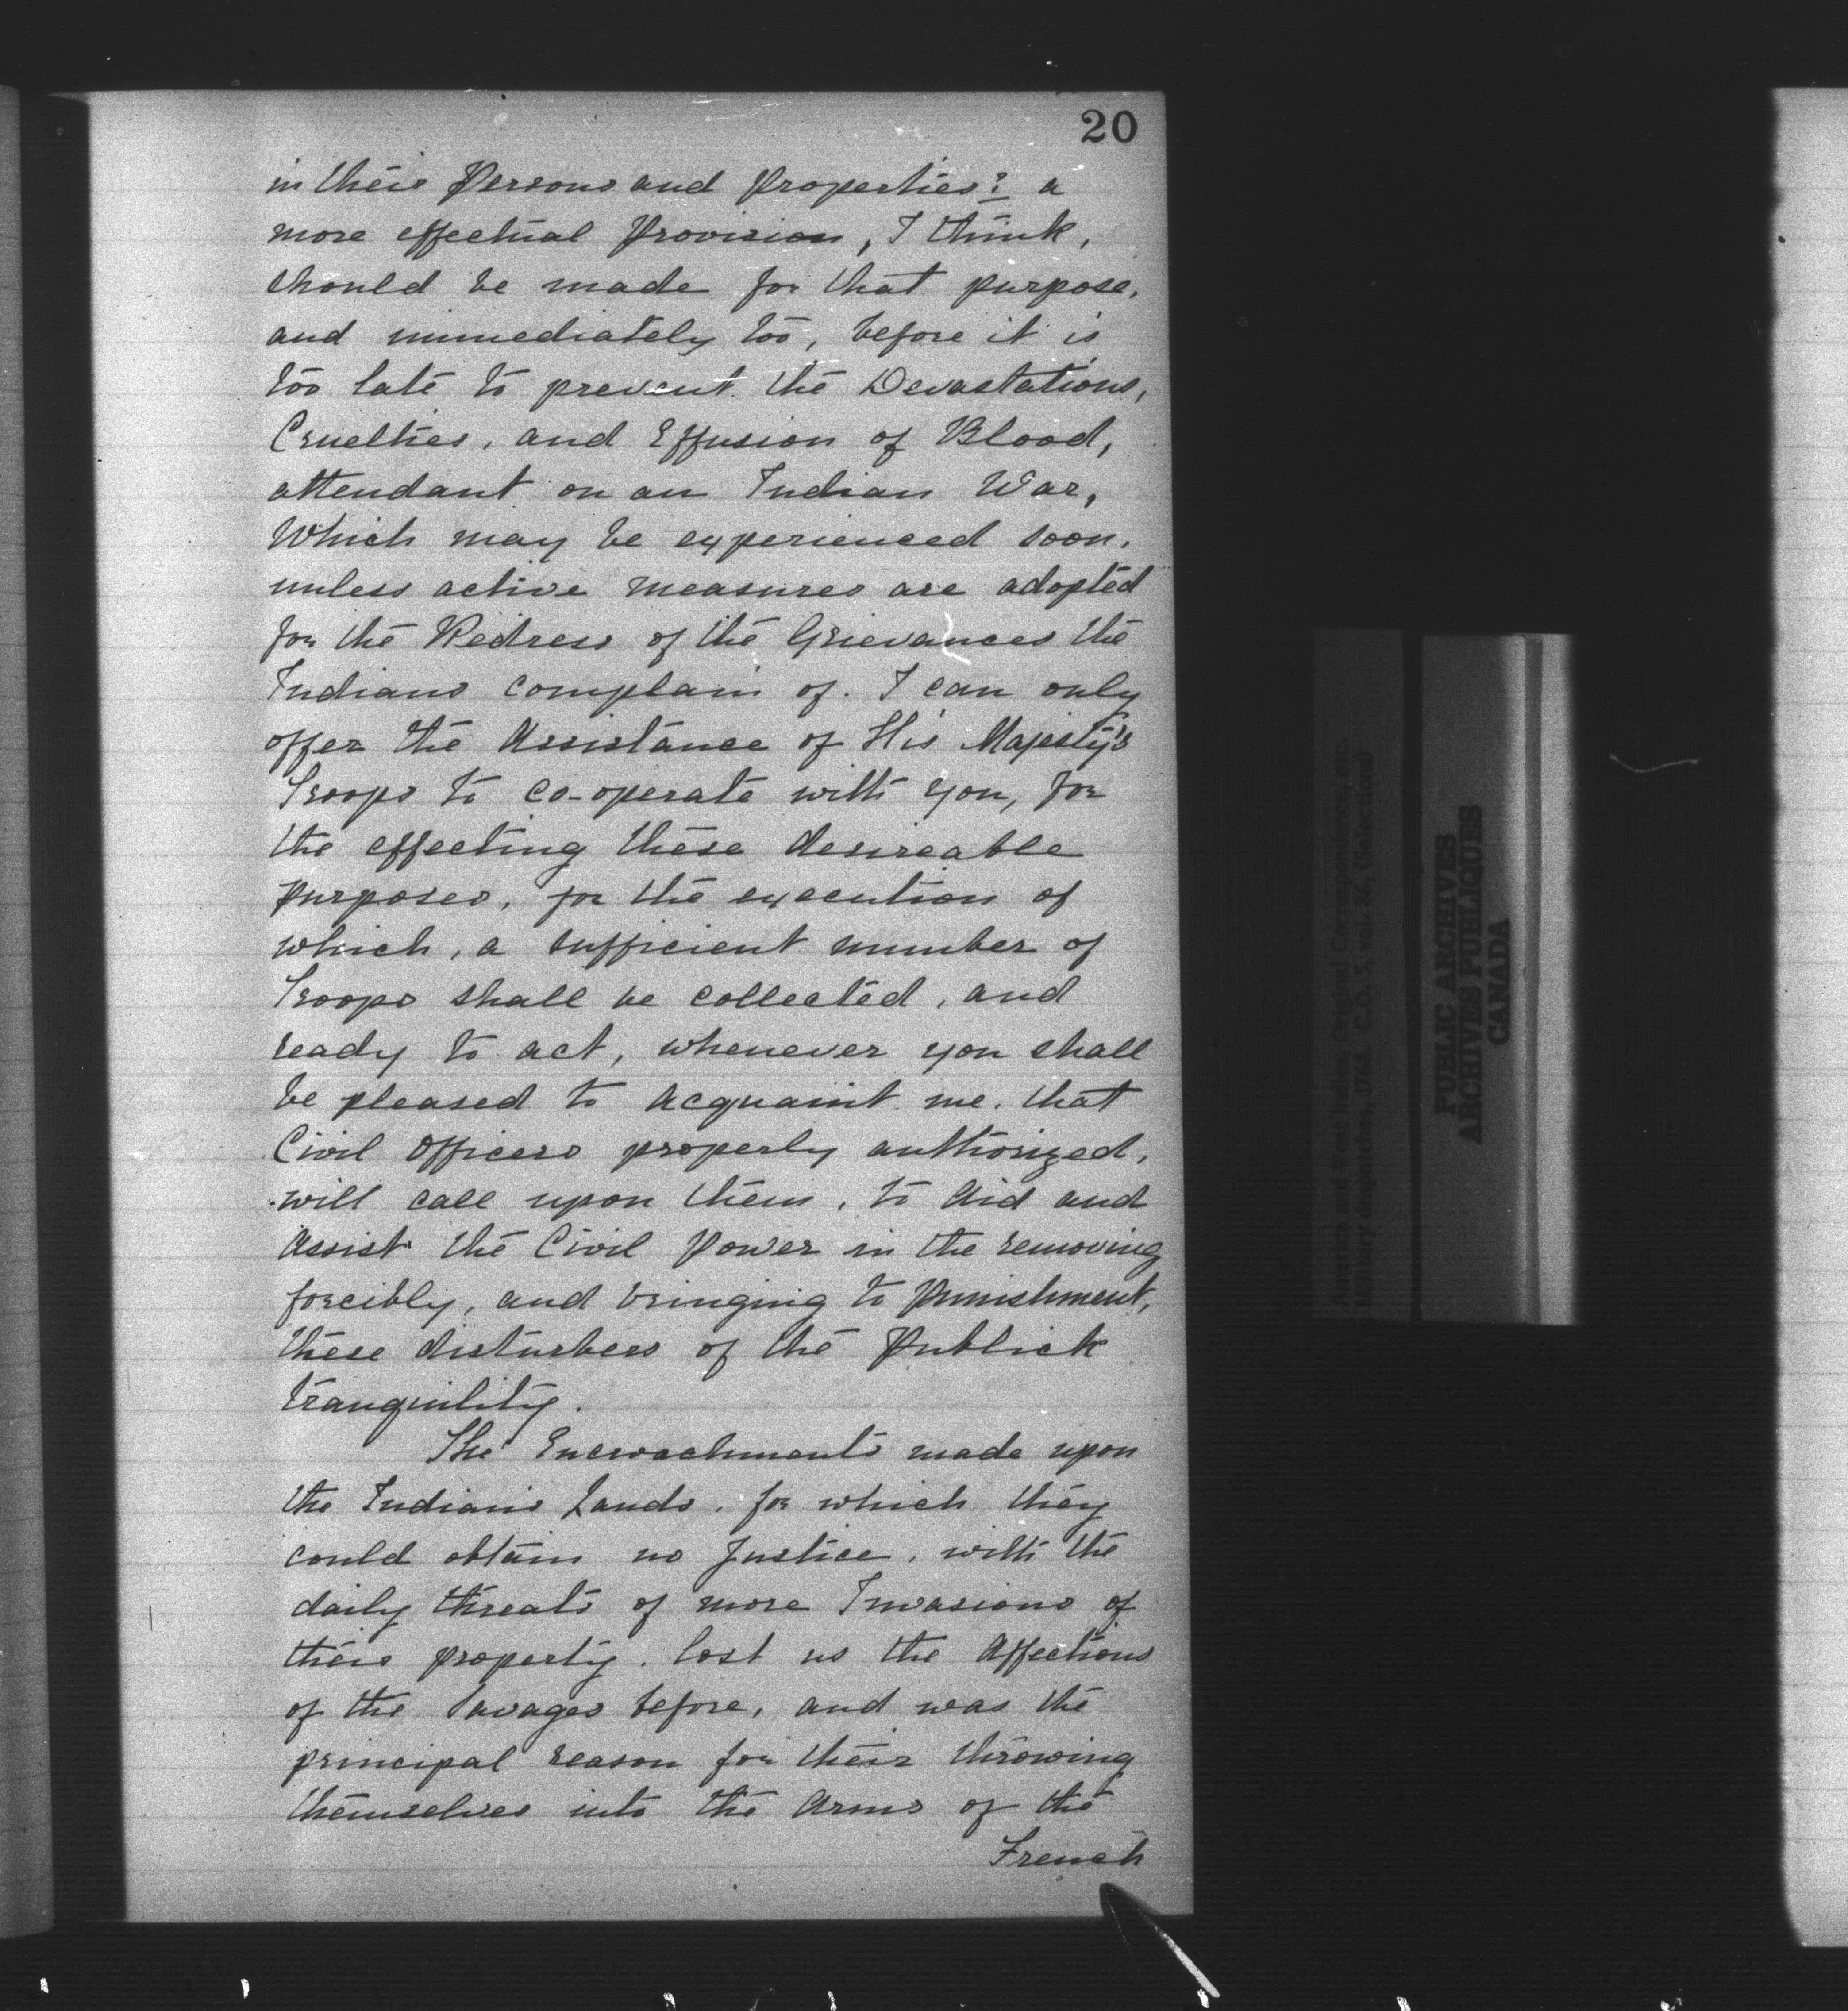 20
in their Persons and Properties: a
more effectual Provision, I think,
should be made for that purpose,
and immediately too, before it is
too late to prevent the Devastations,
Cruelties, and Effusion of Blood,
attendant on an Indian War,
Which may be experienced soon,
unless active measures are adopted
for the Redress of the Grievances the
Indians complain of. I can only
offer the Assistance of His Majesty's
Troops to co-operate with you, for
the effecting these desireable
purposes, for the execution of
which, a sufficient number of
Troops shall be collected, and
ready to act, whenever you shall
be pleased to acquaint me, that
Civil Officers properly authorized,
will call upon them, to Aid and
Assist the Civil Power in the removing
forcibly, and bringing to Punishment,
these disturbers of the Publick
tranquility.
The Encroachments made upon
the Indians Lands, for which they
could obtain no Justice, with the
daily threats of more Invasions of
their property, lost us the Affections
of the Savages before, and was the
principal reason for their throwing
themselves into the Arms of the
French
America and West Indies, Original Correspondence, etc.
Military despatches, 1768. C.O. 5, vol. 86, (Selections)
PUBLIC ARCHIVES
ARCHIVES PUBLIQUES
CANADA